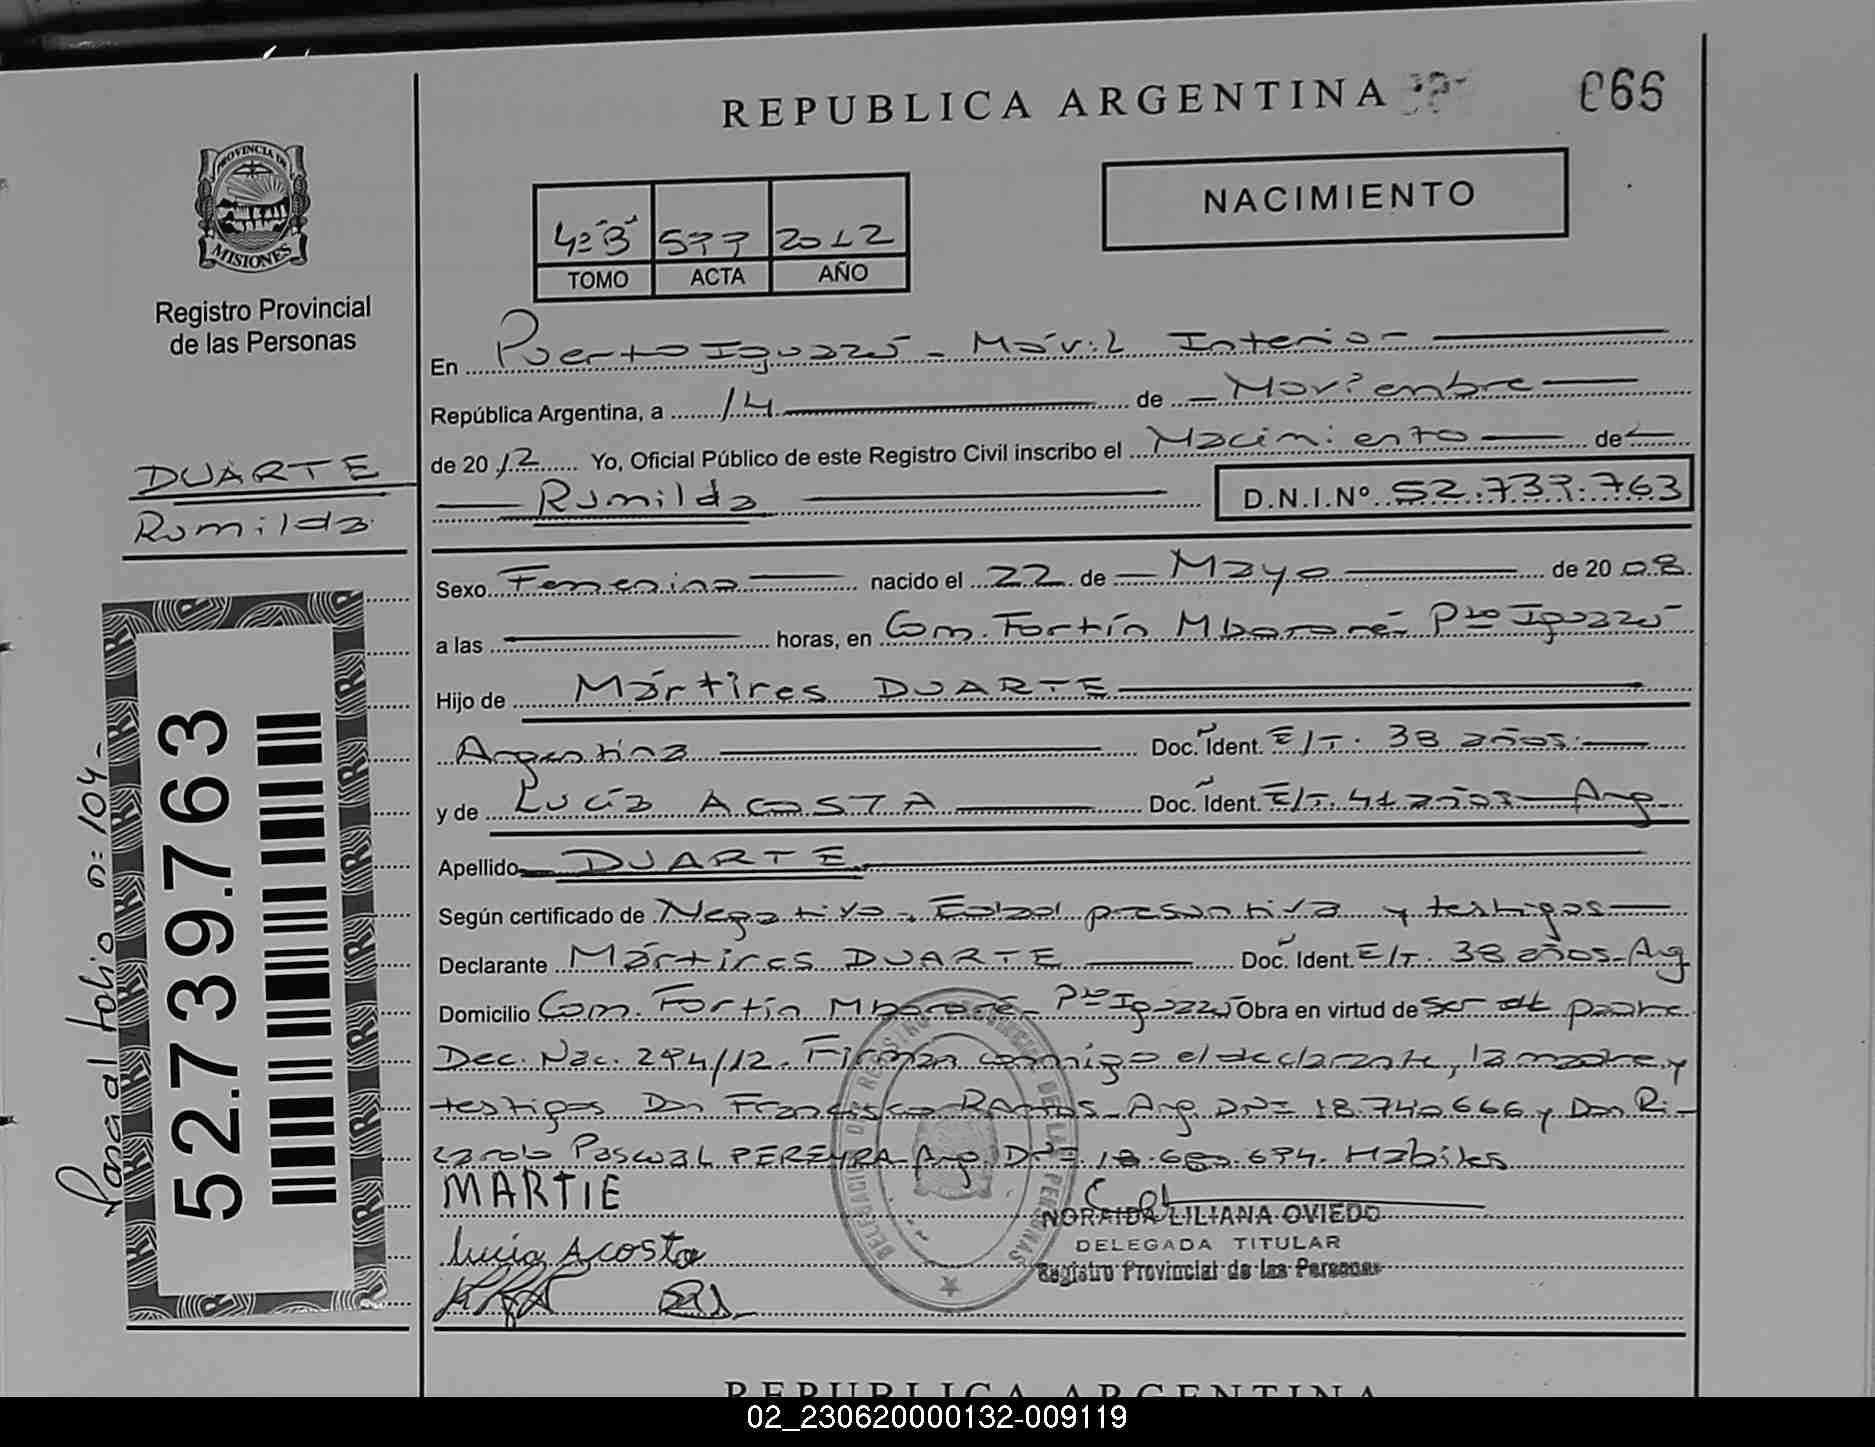 REPUBLICA ARGENTINA
066
PROVINCIA DE
MISIONES
Registro Provincial
de las Personas
NACIMIENTO
4º "B" 577 2012
TOMO ACTA AÑO
En Puerto Iguazú - Móvil Interior
República Argentina, a 14 de Noviembre
de 2012 Yo, Oficial Público de este Registro Civil inscribo el Nacimiento de
Rumilda D.N.I.Nº 52.739.763
DUARTE
Rumilda
Sexo Femenino nacido el 22 de Mayo de 2008
a las horas, en Com. Fortín Mbororé - Pto Iguazú
Hijo de Mártires DUARTE
Argentina Doc. Ident. E/T. 38 años
y de Lucía ACOSTA Doc. Ident. E/T. 41 años Arg
Apellido DUARTE
Según certificado de Negativo, Edad presuntiva y testigos
Declarante Mártires DUARTE Doc. Ident. E/T. 38 años - Arg
Domicilio Com. Fortín Mbororé - Pto Iguazú Obra en virtud de ser el padre
Dec. Nac. 294/12. Firman conmigo el declarante, la madre y
testigos Don Francisco RAMOS - Arg DNI 18.740.666 y Don Ri-
cardo Pascual PEREYRA - Arg
Habiles
MARTIE
Lucia Acosta
NORAIDA LILIANA OVIEDO
DELEGADA TITULAR
Registro Provincial de las Personas
DELEGACION DE REGISTRO PROVINCIAL DE LAS PERSONAS
52.739.763
Pasa al folio nº 104-
REPUBLICA ARGENTINA
02_230620000132-009119